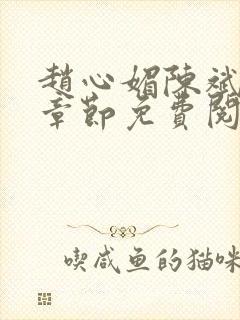 趙心媚陳斌
章節免費閱
喫咸鱼的猫咪